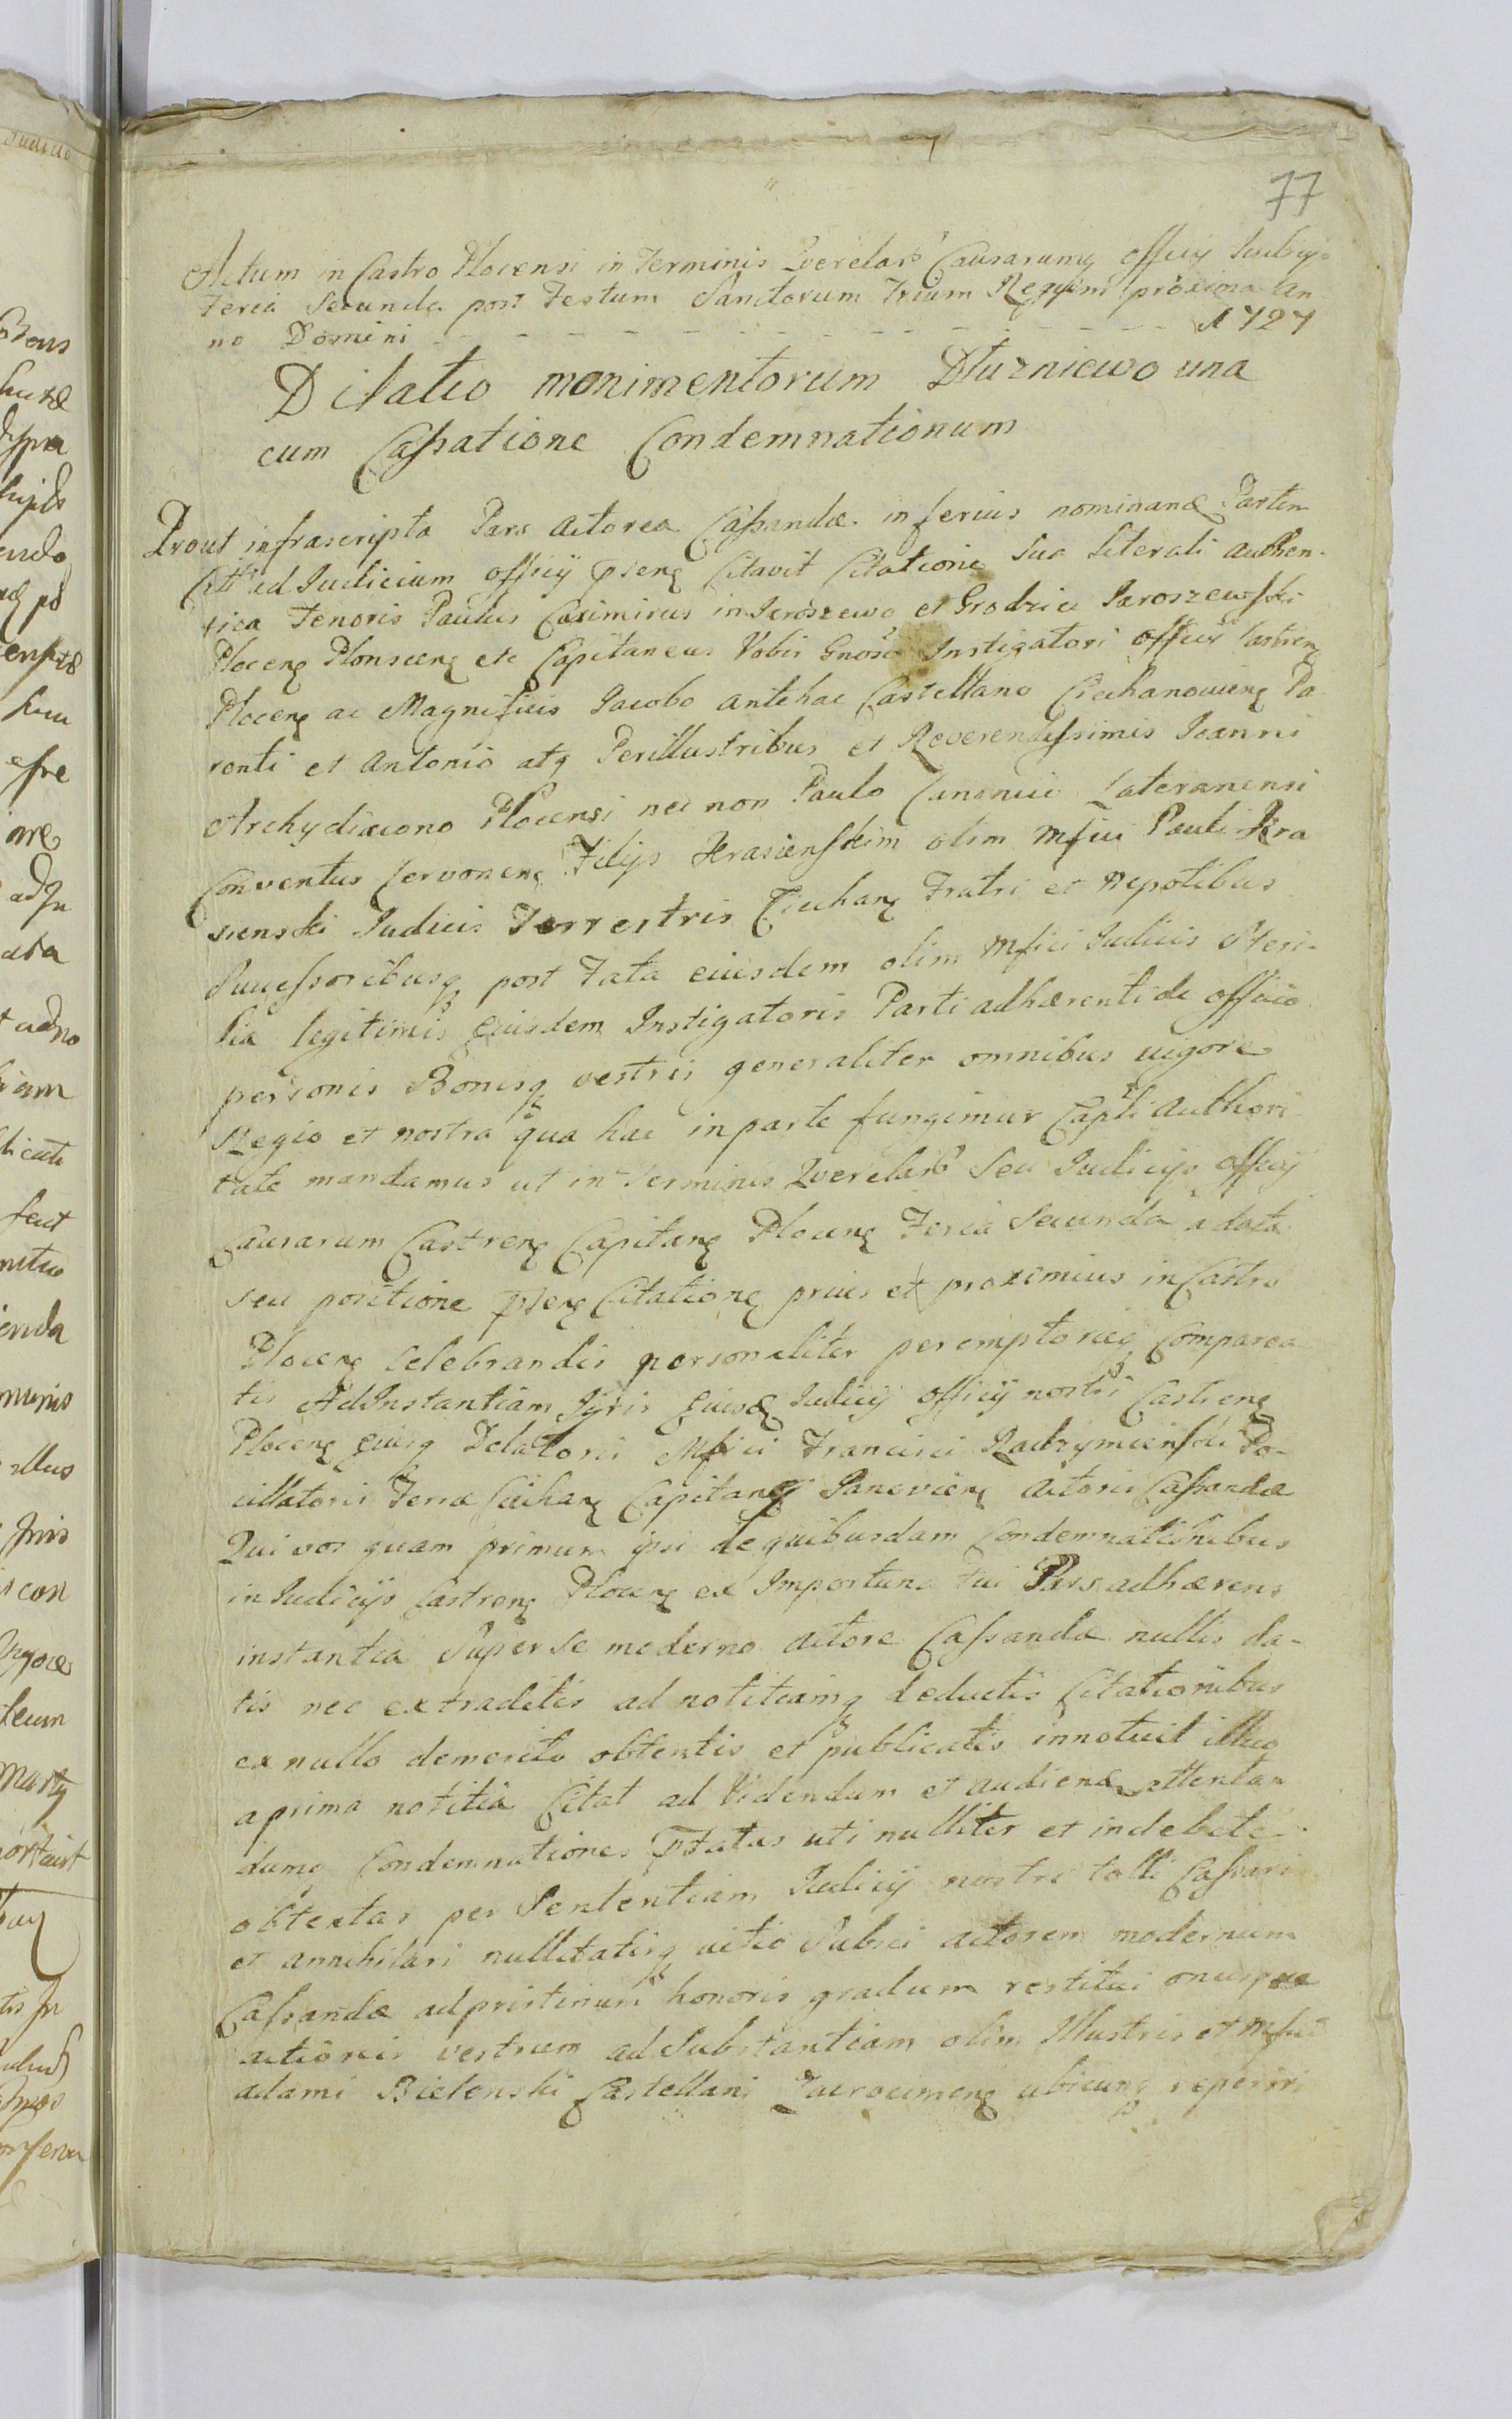 77
Actum in Castro Plocensi in Terminis Querelarū Causarumq officij Iudicijs
Feria Secunda post Festum Sanctorum Trium Regum proxima An
no Domini - - - - - - - - - - - - 1727
Dilatio monimentorum Dłuzniewo una
cum Cassatione Condemnationum
Prout infrascripta Pars Actorea Cassandæ inferius nominanđ Partem
Cittm ad Iudicium officij pſenę Citavit Citatione sua literali authen-
tica Tenoris Paulus Casimirus in Jaroszewo et Grodziec Jaroszewski
Plocenę Plonscenę etc Capitaneus Vobis Gnoso Instigatori officij Castrenę
Plocenę ac Magnificis Jacobo antehac Castellano Ciechanovienę Pa
renti et Antonio atq Perillustribus et Reverendissimis Joanni
Archydiacono Plocensi nec non Paulo Canonico Lateranensi
Conventus Cervonenę Filijs Krasienskim olim Mfici Pauli Kra
sienski Iudicis Terrestris Ciechanę Fratri et Nepotibus
Successoribusq post Fata eiusdem olim Mfici Iudicis Steri-
lia legitimis Eiusdem Instigatoris Parti adhærenti de officio
personis Bonisq vestris generaliter omnibus vigore
Regio et nostra qua hac in parte fungimur Captli Authori
tate mandamus ut in Terminis Querelarū seu Iudicijs officij
Causarum Castrenę Capitanę Plocenę Feria Secunda a data
seu positione pſenę Citationę prius et proximius in Castro
Plocenę Celebrandis personaliter peremptorieq Comparea
tis Ad Instantiam Iuris Eiusđ Iudicij officij nostri Castrenę
Plocenę Eiusq Delatoris Mfici Francisci Radzymienski Po-
cillatoris Terræ Ciechanę Capitanę Janovienę Actoris Cassandæ
Qui vos quam primum ipsi de quibusdam Condemnationibus
in Iudicijs Castrenę Plocenę ex Importuna tui Pars adhærens
instantia Super se moderno Actore Cassandæ nullis da-
tis nec extraditis ad notitiamq deductis Citationibus
ex nullo demerito obtentis et publicatis innotuit illico
a prima notitia Citat ad Videndum et Audienđ attentan
dumq Condemnationes pſatas uti nulliter et indebite
obtentas per Sententiam Iudicij nostri tolli Cassari
et annihilari nullitatisq vitio Subici Actorem modernum
Cassandæ ad pristinum honoris gradum restitui onusque
actionis vestrum ad Substantiam olim Illustris et Mfici
Adami Bielenski Castellani Zacrocimenę ubicunq reperiri